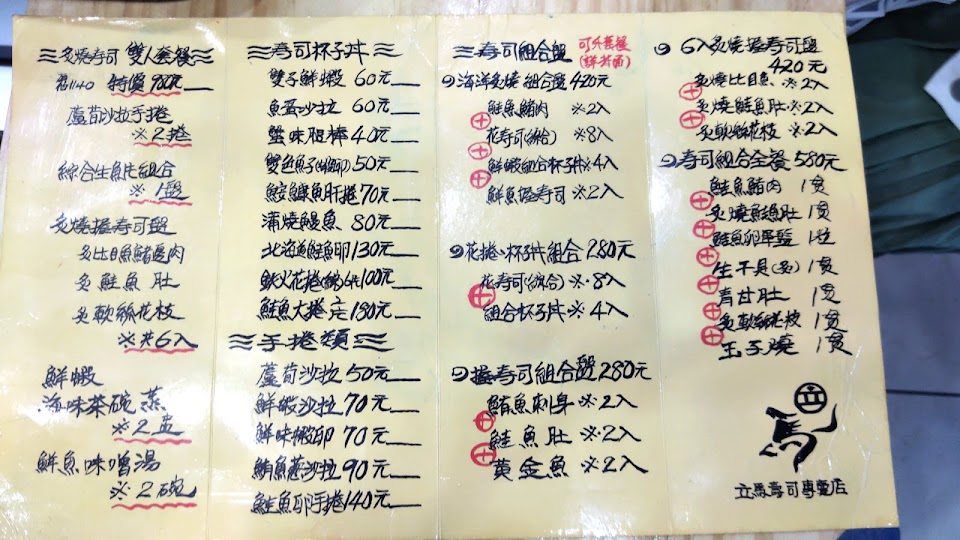 炙燒寿司 雙人套餐
特價 700元
蘆荀沙拉手捲
※2捲
綜合生魚片組合
※1盤
炙燒握寿司盤
炙比目魚鰭邊肉
炙鮭魚肚
炙軟絲花枝
※共6入
鮮蝦
海味茶碗蒸
※2盅
鮮魚味噌湯
※2碗
寿司杯子丼
雙子鮮蝦 60元
魚蛋沙拉 60元
蟹味棍棒 40元
雙色魚子 50元
鮟鱇魚肝捲 70元
蒲燒鰻魚 80元
北海道鮭魚卵 130元
鮭魚大捲 180元
手捲類
蘆荀沙拉 50元
鮮蝦沙拉 70元
鮮味蝦卵 70元
鮪魚蔥沙拉 90元
鮭魚卵手捲 140元
寿司組合盤
海洋炙燒組合盤 420元
鮭魚鰭肉 ※2入
花寿司(綜合) ※8入
鮮蝦組合杯子丼 ※4入
鮮魚握寿司 ※2入
花捲、杯子丼組合 280元
花寿司(綜合) ※8入
組合杯子丼 ※4入
握寿司組合盤 280元
鮪魚刺身 ※2入
鮭魚肚 ※2入
黃金魚 ※2入
6入炙燒握寿司盤
420元
炙燒比目魚 ※2入
炙燒鮭魚肚 ※2入
炙軟絲花枝 ※2入
寿司組合全餐 580元
鮭魚鰭肉 1貫
炙燒鮭魚肚 1貫
鮭魚卵軍艦 1粒
生干貝(炙) 1貫
青甘肚 1貫
炙軟絲花枝 1貫
玉子燒 1貫
立馬寿司專賣店